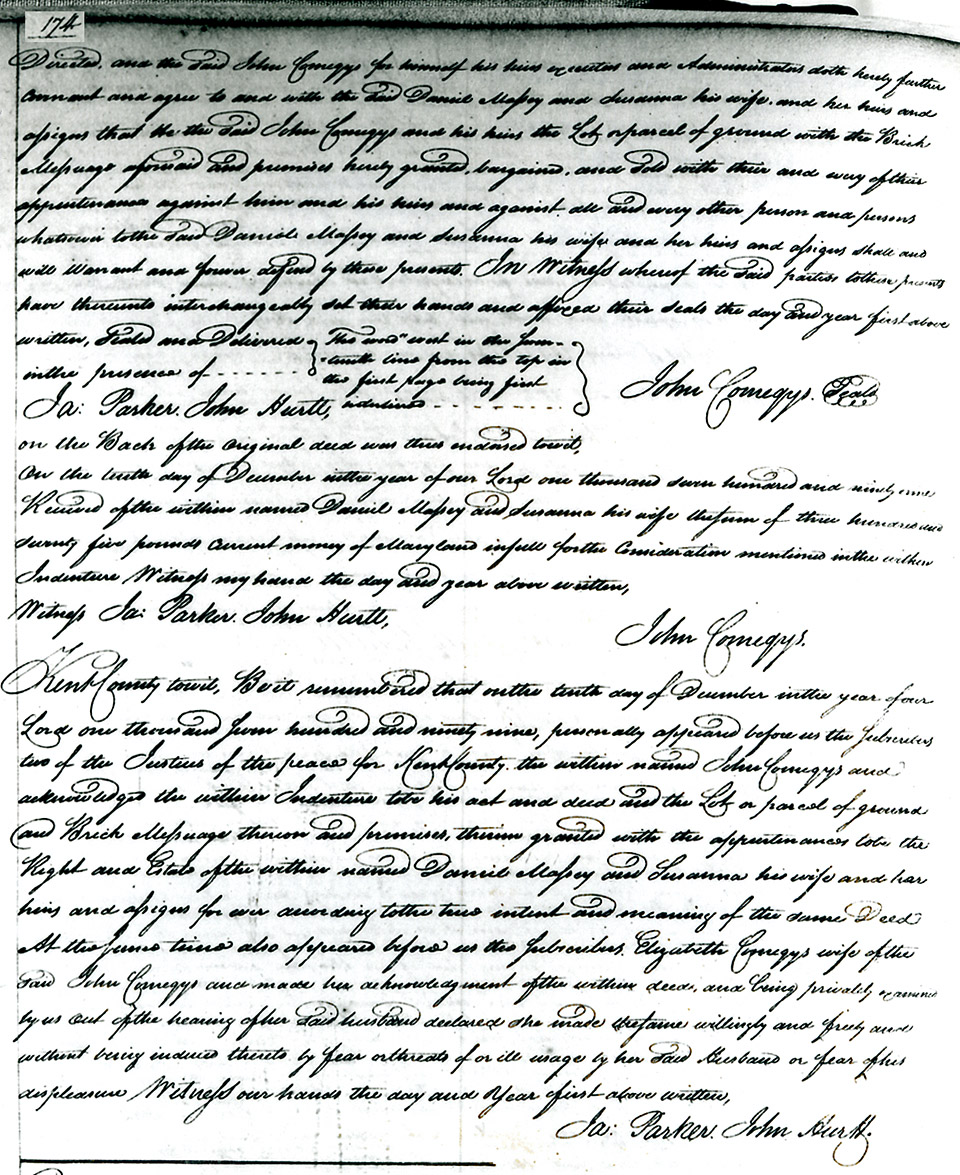 174
Directed, and the Said John Comegys for himself his heirs executors and Administrators doth hereby further
Covenant and agree to and with the Said Daniel Massey and Susanna his wife, and her heirs and
assigns that he the Said John Comegys and his heirs the Lot or parcel of ground with the Brick
Messuage aforesaid and premises hereby granted, bargained, and Sold with their and every of their
appurtenances against him and his heirs and against all and every other person and persons
whatsoever to the Said Daniel Massey and Susanna his wife and her heirs and assigns shall and
will Warrant and forever defend by these presents. In Witness whereof the Said parties to these presents
have thereunto interchangeably set their hands and affixed their seals the day and year first above
written, Sealed and Delivered The word "west in the four-
in the presence of -teenth line from the top in
the first page being first
Ja: Parker. John Hurtt, interlined John Comegys. Seal
on the Back of the Original deed was thus endorsed towit,
On the tenth day of December in the year of our Lord one thousand seven hundred and ninety nine
Received of the within named Daniel Massey and Susanna his wife the sum of three hundred and
seventy five pounds Current money of Maryland in full for the Consideration mentioned in the within
Indenture Witness my hand the day and year above written,
Witness Ja: Parker. John Hurtt,
John Comegys.
Kent County towit, Be it remembered that on the tenth day of December in the year of our
Lord one thousand seven hundred and ninety nine, personally appeared before us the Subscribers
two of the Justices of the peace for Kent County. the within named John Comegys and
acknowledged the within Indenture to be his act and deed and the Lot or parcel of ground
and Brick Messuage thereon and premises, therein granted with the appurtenances to be the
Right and Estate of the within named Daniel Massey and Susanna his wife and her
heirs and assigns for ever according to the true intent and meaning of the same Deed
At the same time also appeared before us the Subscribers. Elizabeth Comegys wife of the
Said John Comegys and made her acknowledgment of the within deed, and being privately examined
by us out of the hearing of her Said husband declared she made the same willingly and freely and
without being induced thereto by fear or threats of or ill usage by her Said Husband or fear of his
displeasure Witness our hands the day and Year first above written,
Ja: Parker. John Hurtt.